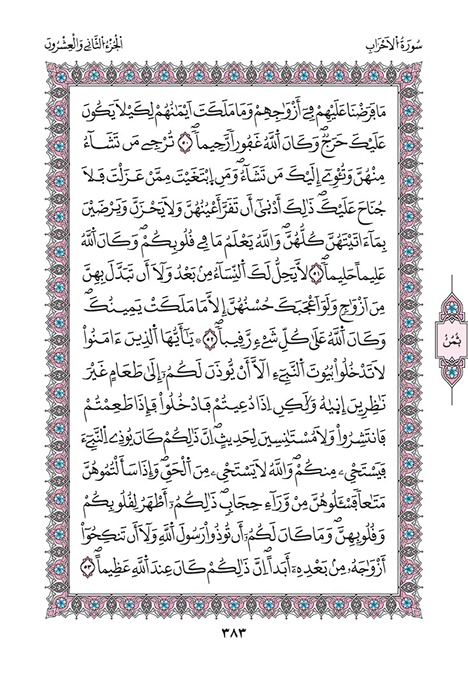 سُورَةُ اُلَاحْزَابِ
اُلْجُزْءُ اُلثَّانِي وَالْعِشْرُونَ
مَا فَرَضْنَا عَلَيْهِمْ فِےٓ أَزْوَٰجِهِمْ وَمَا مَلَكَتَ اَيْمَٰنُهُمْ لِكَيْلَا يَكُونَ
عَلَيْكَ حَرَجٞۖ وَكَانَ اَللَّهُ غَفُوراٗ رَّحِيماٗۖ ٥٠ تُرْجِے مَن تَشَآءُ
مِنْهُنَّ وَتُـْٔوِےٓ إِلَيْكَ مَن تَشَآءُۖ وَمَنِ اِبْتَغَيْتَ مِمَّنْ عَزَلْتَ فَلَا
جُنَاحَ عَلَيْكَۖ ذَٰلِكَ أَدْنَىٰٓ أَن تَقَرَّ أَعْيُنُهُنَّ وَلَا يَحْزَنَّ وَيَرْضَيْنَ
بِمَآ ءَاتَيْتَهُنَّ كُلُّهُنَّۖ وَاللَّهُ يَعْلَمُ مَا فِے قُلُوبِكُمْۖ وَكَانَ اَللَّهُ
عَلِيماً حَلِيماٗۖ ٥١ لَّا يَحِلُّ لَكَ اَلنِّسَآءُ مِنۢ بَعْدُ وَلَآ أَن تَبَدَّلَ بِهِنَّ
مِنَ اَزْوَٰجٖ وَلَوَ اَعْجَبَكَ حُسْنُهُنَّ إِلَّا مَا مَلَكَتْ يَمِينُكَۖ
وَكَانَ اَللَّهُ عَلَىٰ كُلِّ شَےْءٖ رَّقِيباٗۖ ٥٢ يَٰٓأَيُّهَا اَلذِينَ ءَامَنُواْ
لَا تَدْخُلُواْ بُيُوتَ اَلنَّبِےٓءِ الَّآ أَنْ يُّوذَنَ لَكُمُۥٓ إِلَىٰ طَعَامٍ غَيْرَ
نَٰظِرِينَ إِنَيٰهُ وَلَٰكِنِ اِذَا دُعِيتُمْ فَادْخُلُواْ فَإِذَا طَعِمْتُمْ
فَانتَشِرُواْ وَلَا مُسْتَٰنِسِينَ لِحَدِيثٍۖ اِنَّ ذَٰلِكُمْ كَانَ يُوذِے اِلنَّبِےٓءَ
فَيَسْتَحْيِۦ مِنكُمْۖ وَاللَّهُ لَا يَسْتَحْيِۦ مِنَ اَلْحَقِّۖ وَإِذَا سَأَلْتُمُوهُنَّ
مَتَٰعاٗ فَسْـَٔلُوهُنَّ مِنْ وَّرَآءِ حِجَابٖۖ ذَٰلِكُمُۥٓ أَطْهَرُ لِقُلُوبِكُمْ
وَقُلُوبِهِنَّۖ وَمَا كَانَ لَكُمُۥٓ أَن تُوذُواْ رَسُولَ اَللَّهِ وَلَآ أَن تَنكِحُوٓاْ
أَزْوَٰجَهُۥ مِنۢ بَعْدِهِۦٓ أَبَداًۖ اِنَّ ذَٰلِكُمْ كَانَ عِندَ اَللَّهِ عَظِيماًۖ ٥٣
ثُمُنُ
٣٨٣